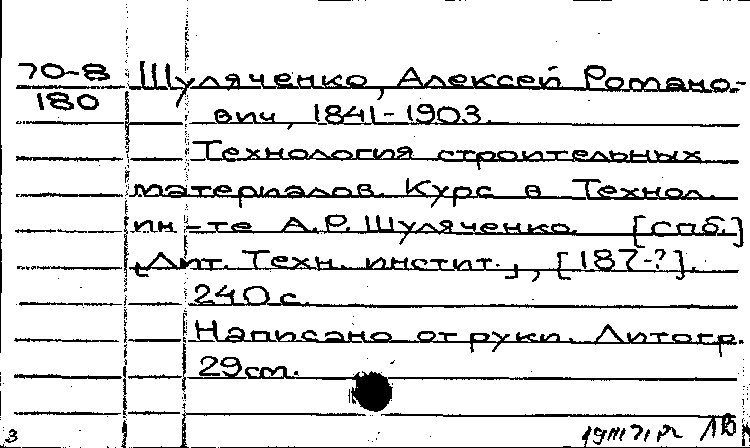 70-8 Шуляченко, Алексей Романо-
180 вич, 1841-1903.
Технология строительных
материалов. Курс в Технол.
ин-те А.Р. Шуляченко. [спб.]
„Лит. Техн. инстит.", [187-?].
240 с.
Написано от руки. Литогр.
29 см.
3